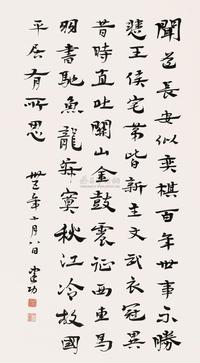 聞道長安似奕棋百年世事不勝
悲王侯宅第皆新主文武衣冠異
昔時直北關山金鼓震征西車馬
羽書馳魚龍寂寞秋江冷故國
平居有所思 年十月八日